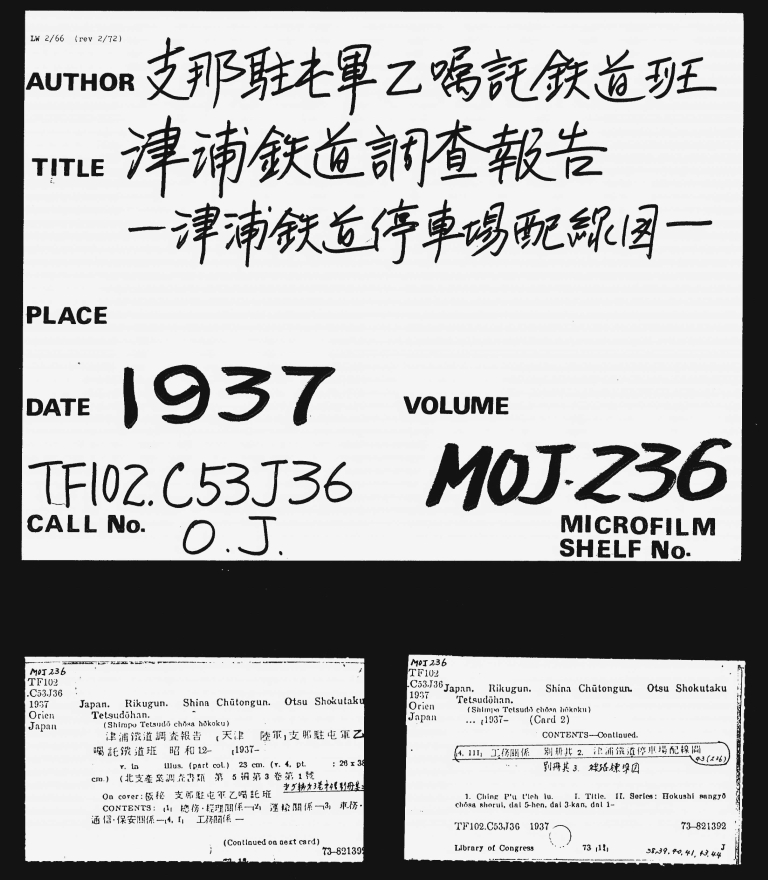 LW 2/66 (rev 2/72)
AUTHOR 支那駐屯軍乙嘱託鉄道班
TITLE 津浦鉄道調査報告
—津浦鉄道停車場配線図—
PLACE
DATE 1937 VOLUME
TF102.C53J36 MOJ-236
CALL No. O.J. MICROFILM
SHELF No.
MOJ 236
TF102
.C53J36
1937
Orien
Japan
Japan. Rikugun. Shina Chūtongun. Otsu Shokutaku
Tetsudōhan.
(Shimpo Tetsudō chōsa hōkoku)
津浦鐵道調査報告 [天津 陸軍]支那駐屯軍乙
囑託鐵道班 昭和12- [1937-
v. in illus. (part col.) 23 cm. (v. 4, pt. : 26 x 38
cm.) (北支産業調査書類 第5編第3卷第1號
On cover: 極秘 支那駐屯軍乙囑託班
CONTENTS: [1] 總務·經理關係—[2] 運輸關係—[3] 車務·
通信·保安關係—[4, I] 工務關係—
(Continued on next card)
73-821392
MOJ 236
TF102
.C53J36
1937
Orien
Japan
Japan. Rikugun. Shina Chūtongun. Otsu Shokutaku
Tetsudōhan.
(Shimpo Tetsudō chōsa hōkoku)
... [1937- (Card 2)
CONTENTS—Continued.
[4, III] 工務關係 別冊其2. 津浦鐵道停車場配線圖
別冊其3.
1. Ching P'u t'ieh lu. I. Title. II. Series: Hokushi sangyō
chōsa shorui, dai 5-hen, dai 3-kan, dai 1-
TF102.C53J36 1937 73-821392
Library of Congress 73 [1] J
38,39,40,41,43,44